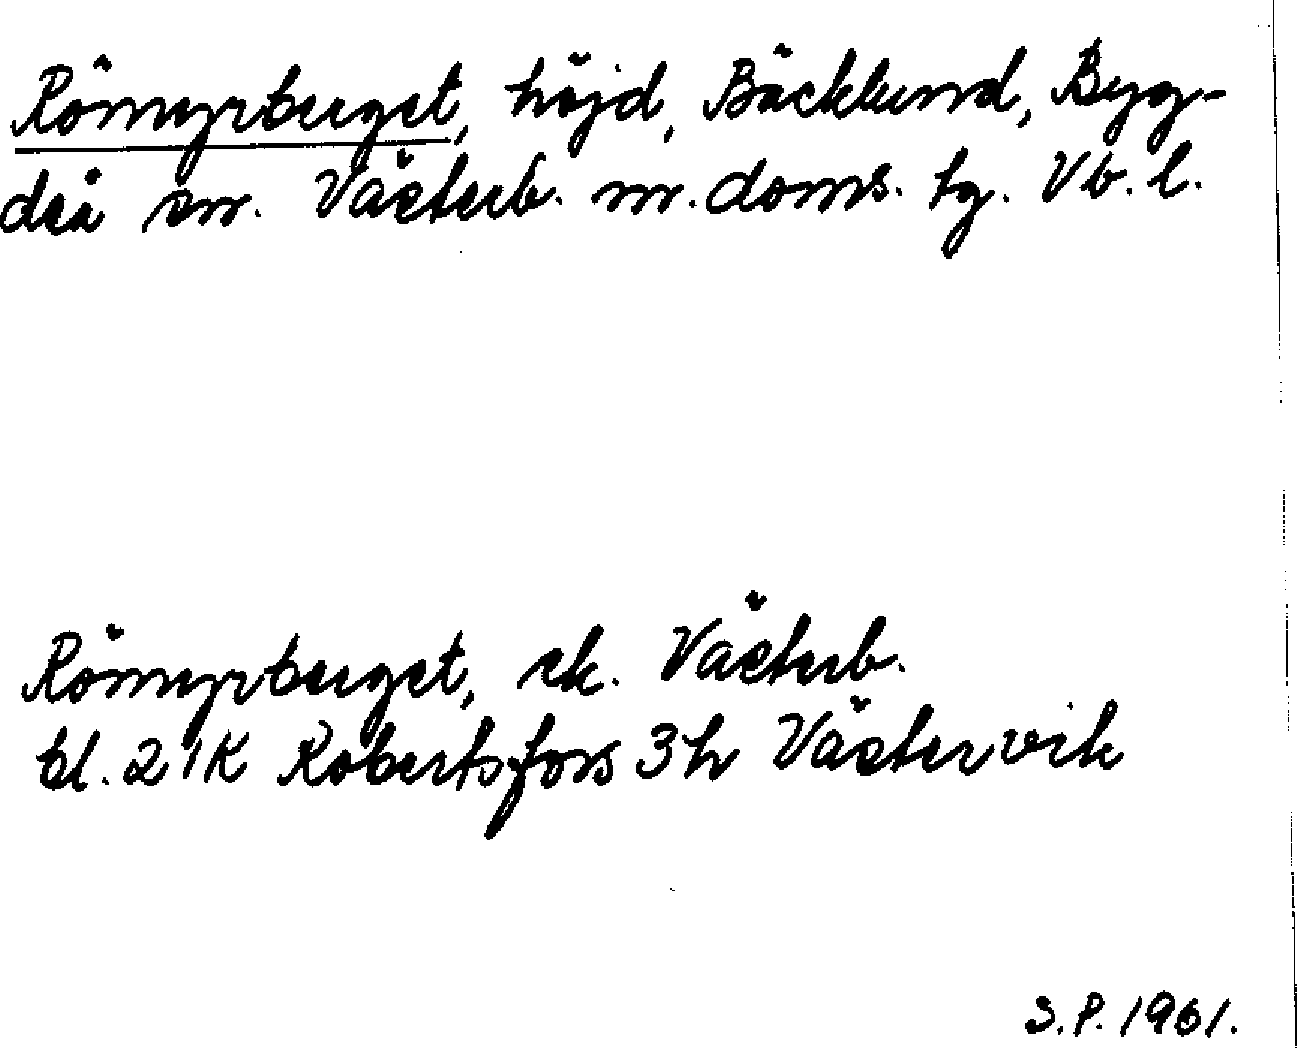 Römyrberget, höjd, Bäcklund, Byg-
deå sn. Västerb. n. doms. tg. Vb. l.
Römyrberget, ek. Västerb.
bl. 21K Robertsfors 3h Västervik
S.P. 1961.